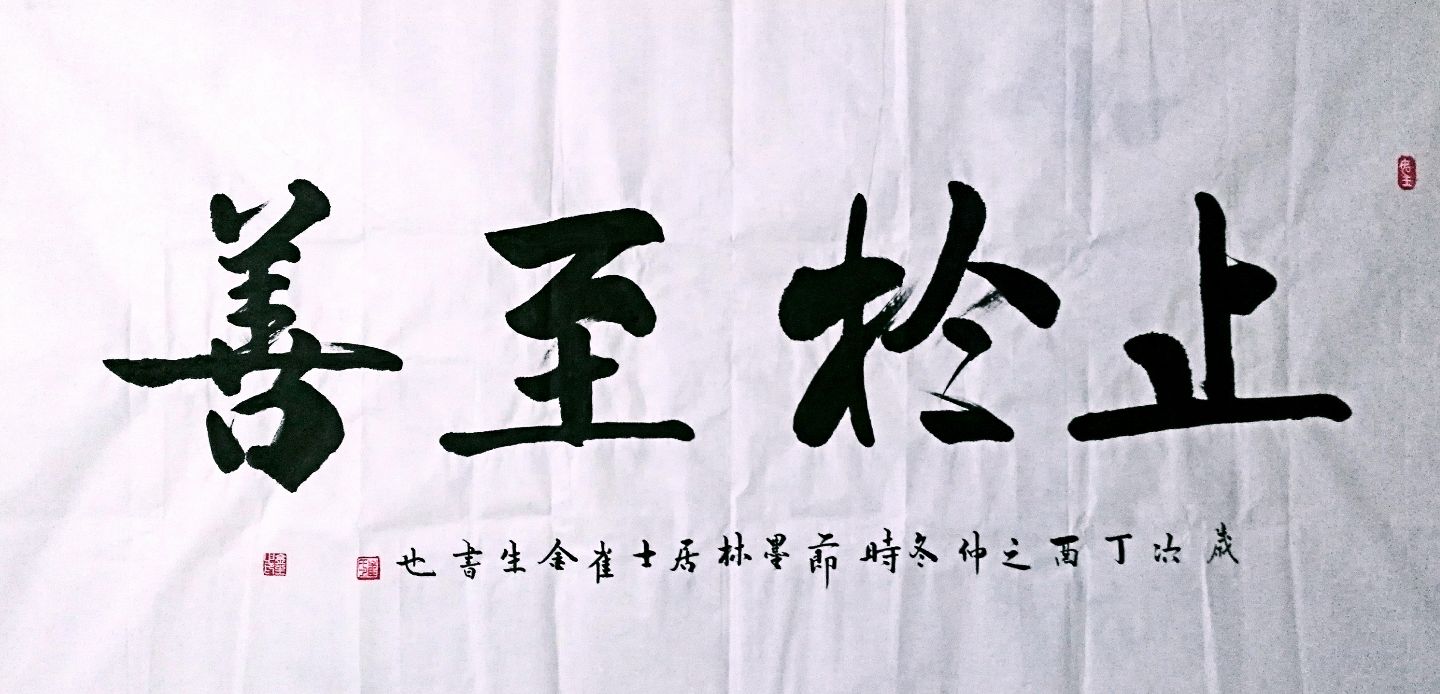 止於至善
歲次丁酉之仲冬時節墨林居士崔金生書也